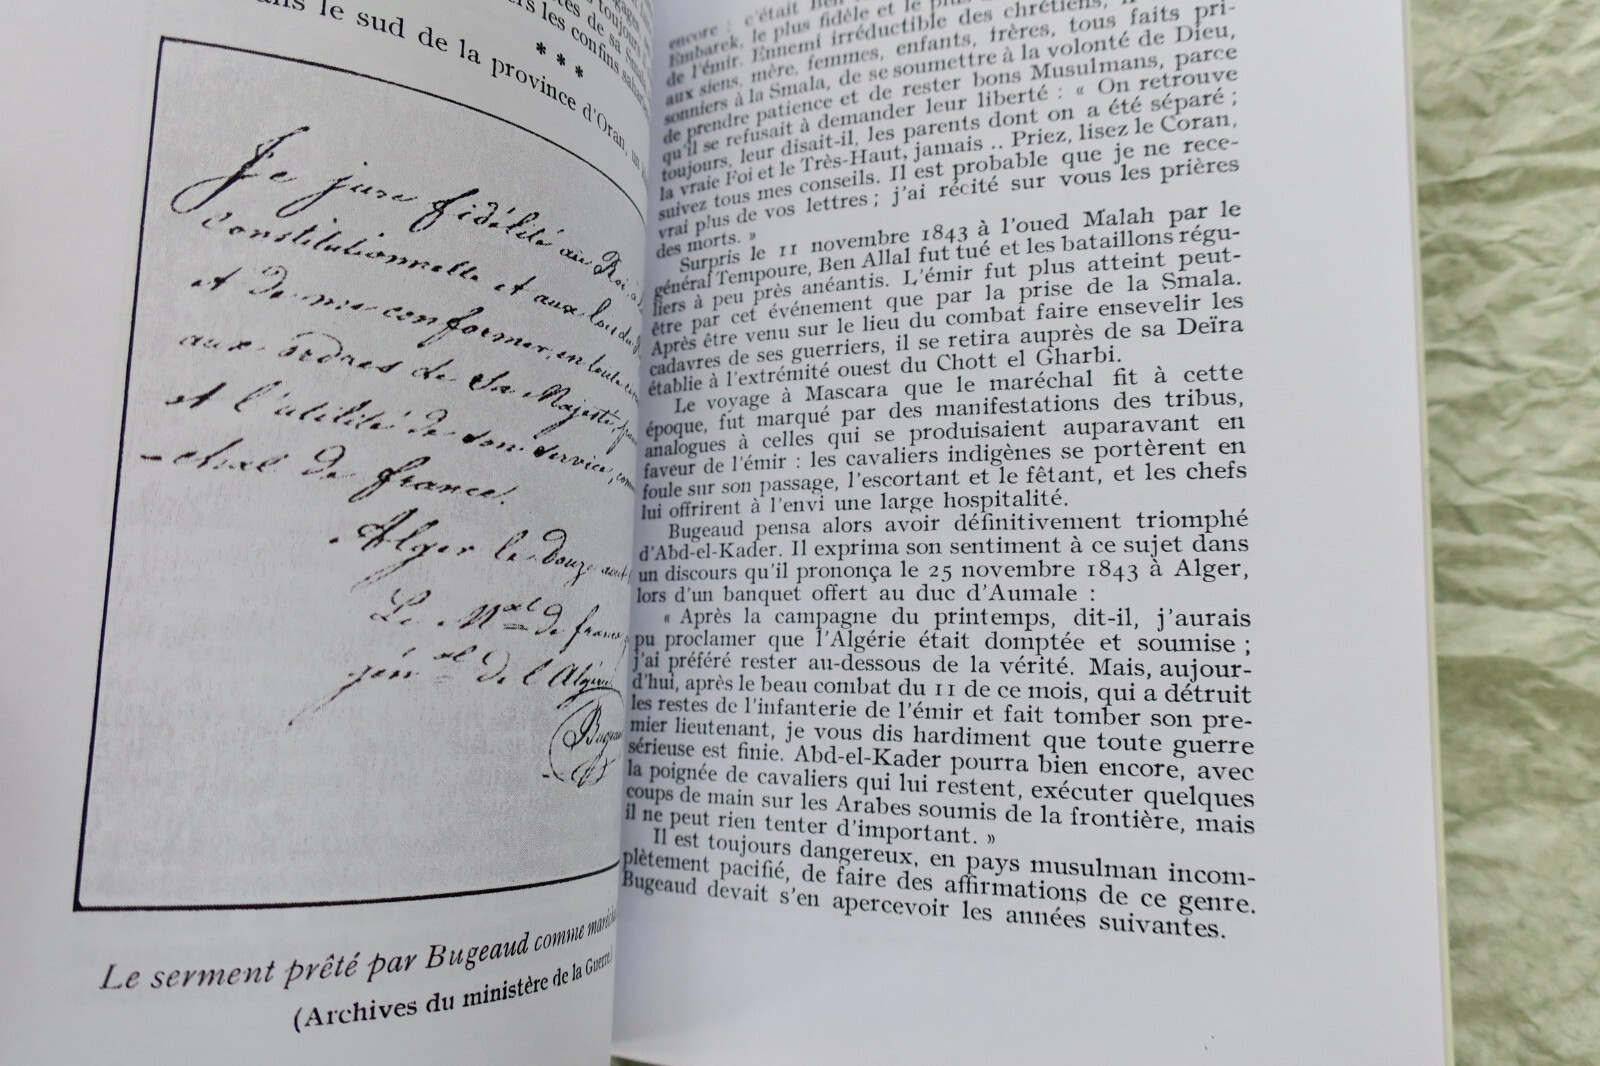 dans le sud de la province d'Oran, un
* * *
Je jure fidélité au Roi
constitutionnelle et aux lois du
et de me conformer, en toute
aux ordres de Sa Majesté,
et à l'utilité de son service,
de france.
Alger le douze aout
Le Mxal de france
génxal de l'Algérie
Bugeaud
Le serment prêté par Bugeaud comme
(Archives du ministère de la Guerre)
encore : c'était Ben
Embarek, le plus fidèle et le plus
de l'émir. Ennemi irréductible des chrétiens,
aux siens, mère, femmes, enfants, frères, tous faits pri-
sonniers à la Smala, de se soumettre à la volonté de Dieu,
de prendre patience et de rester bons Musulmans, parce
qu'il se refusait à demander leur liberté : « On retrouve
toujours, leur disait-il, les parents dont on a été séparé ;
la vraie Foi et le Très-Haut, jamais .. Priez, lisez le Coran,
suivez tous mes conseils. Il est probable que je ne rece-
vrai plus de vos lettres ; j'ai récité sur vous les prières
des morts. »
Surpris le 11 novembre 1843 à l'oued Malah par le
général Tempoure, Ben Allal fut tué et les bataillons régu-
liers à peu près anéantis. L'émir fut plus atteint peut-
être par cet événement que par la prise de la Smala.
Après être venu sur le lieu du combat faire ensevelir les
cadavres de ses guerriers, il se retira auprès de sa Deïra
établie à l'extrémité ouest du Chott el Gharbi.
Le voyage à Mascara que le maréchal fit à cette
époque, fut marqué par des manifestations des tribus,
analogues à celles qui se produisaient auparavant en
faveur de l'émir : les cavaliers indigènes se portèrent en
foule sur son passage, l'escortant et le fêtant, et les chefs
lui offrirent à l'envi une large hospitalité.
Bugeaud pensa alors avoir définitivement triomphé
d'Abd-el-Kader. Il exprima son sentiment à ce sujet dans
un discours qu'il prononça le 25 novembre 1843 à Alger,
lors d'un banquet offert au duc d'Aumale :
« Après la campagne du printemps, dit-il, j'aurais
pu proclamer que l'Algérie était domptée et soumise ;
j'ai préféré rester au-dessous de la vérité. Mais, aujour-
d'hui, après le beau combat du 11 de ce mois, qui a détruit
les restes de l'infanterie de l'émir et fait tomber son pre-
mier lieutenant, je vous dis hardiment que toute guerre
sérieuse est finie. Abd-el-Kader pourra bien encore, avec
la poignée de cavaliers qui lui restent, exécuter quelques
coups de main sur les Arabes soumis de la frontière, mais
il ne peut rien tenter d'important. »
Il est toujours dangereux, en pays musulman incom-
plètement pacifié, de faire des affirmations de ce genre.
Bugeaud devait s'en apercevoir les années suivantes.